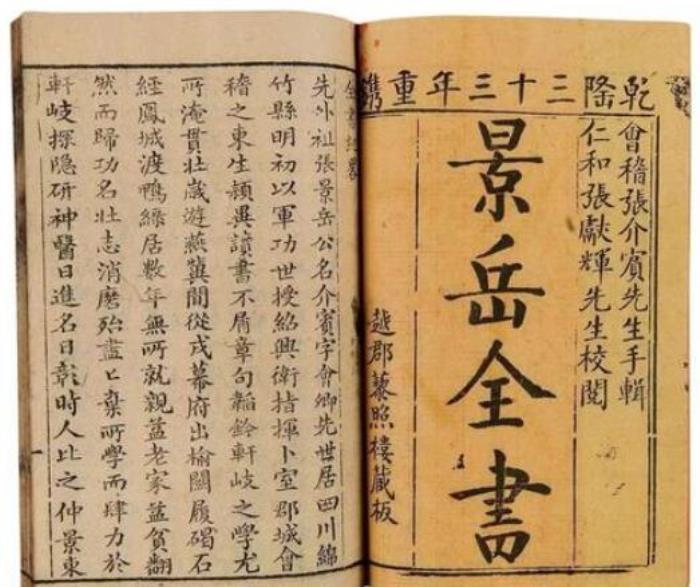 乾隆三十三年重鐫
會稽張介賓先生手輯
仁和張獻輝先生校閱
景岳全書
越郡藜照樓藏板
先外祖張景岳公名介賓字會卿先世居四川綿
竹縣明初以軍功世授紹興衛指揮卜室郡城會
稽之東生穎異讀書不屑章句韜鈐軒岐之學尤
所淹貫壯歲遊燕冀間從戎幕府出榆關履碣石
經鳳城渡鴨綠居數年無所就親益老家益貧翻
然而歸功名壯志消磨殆盡亡棄所學而肆力於
軒岐探隱研神醫日進名日彰時人比之仲景東